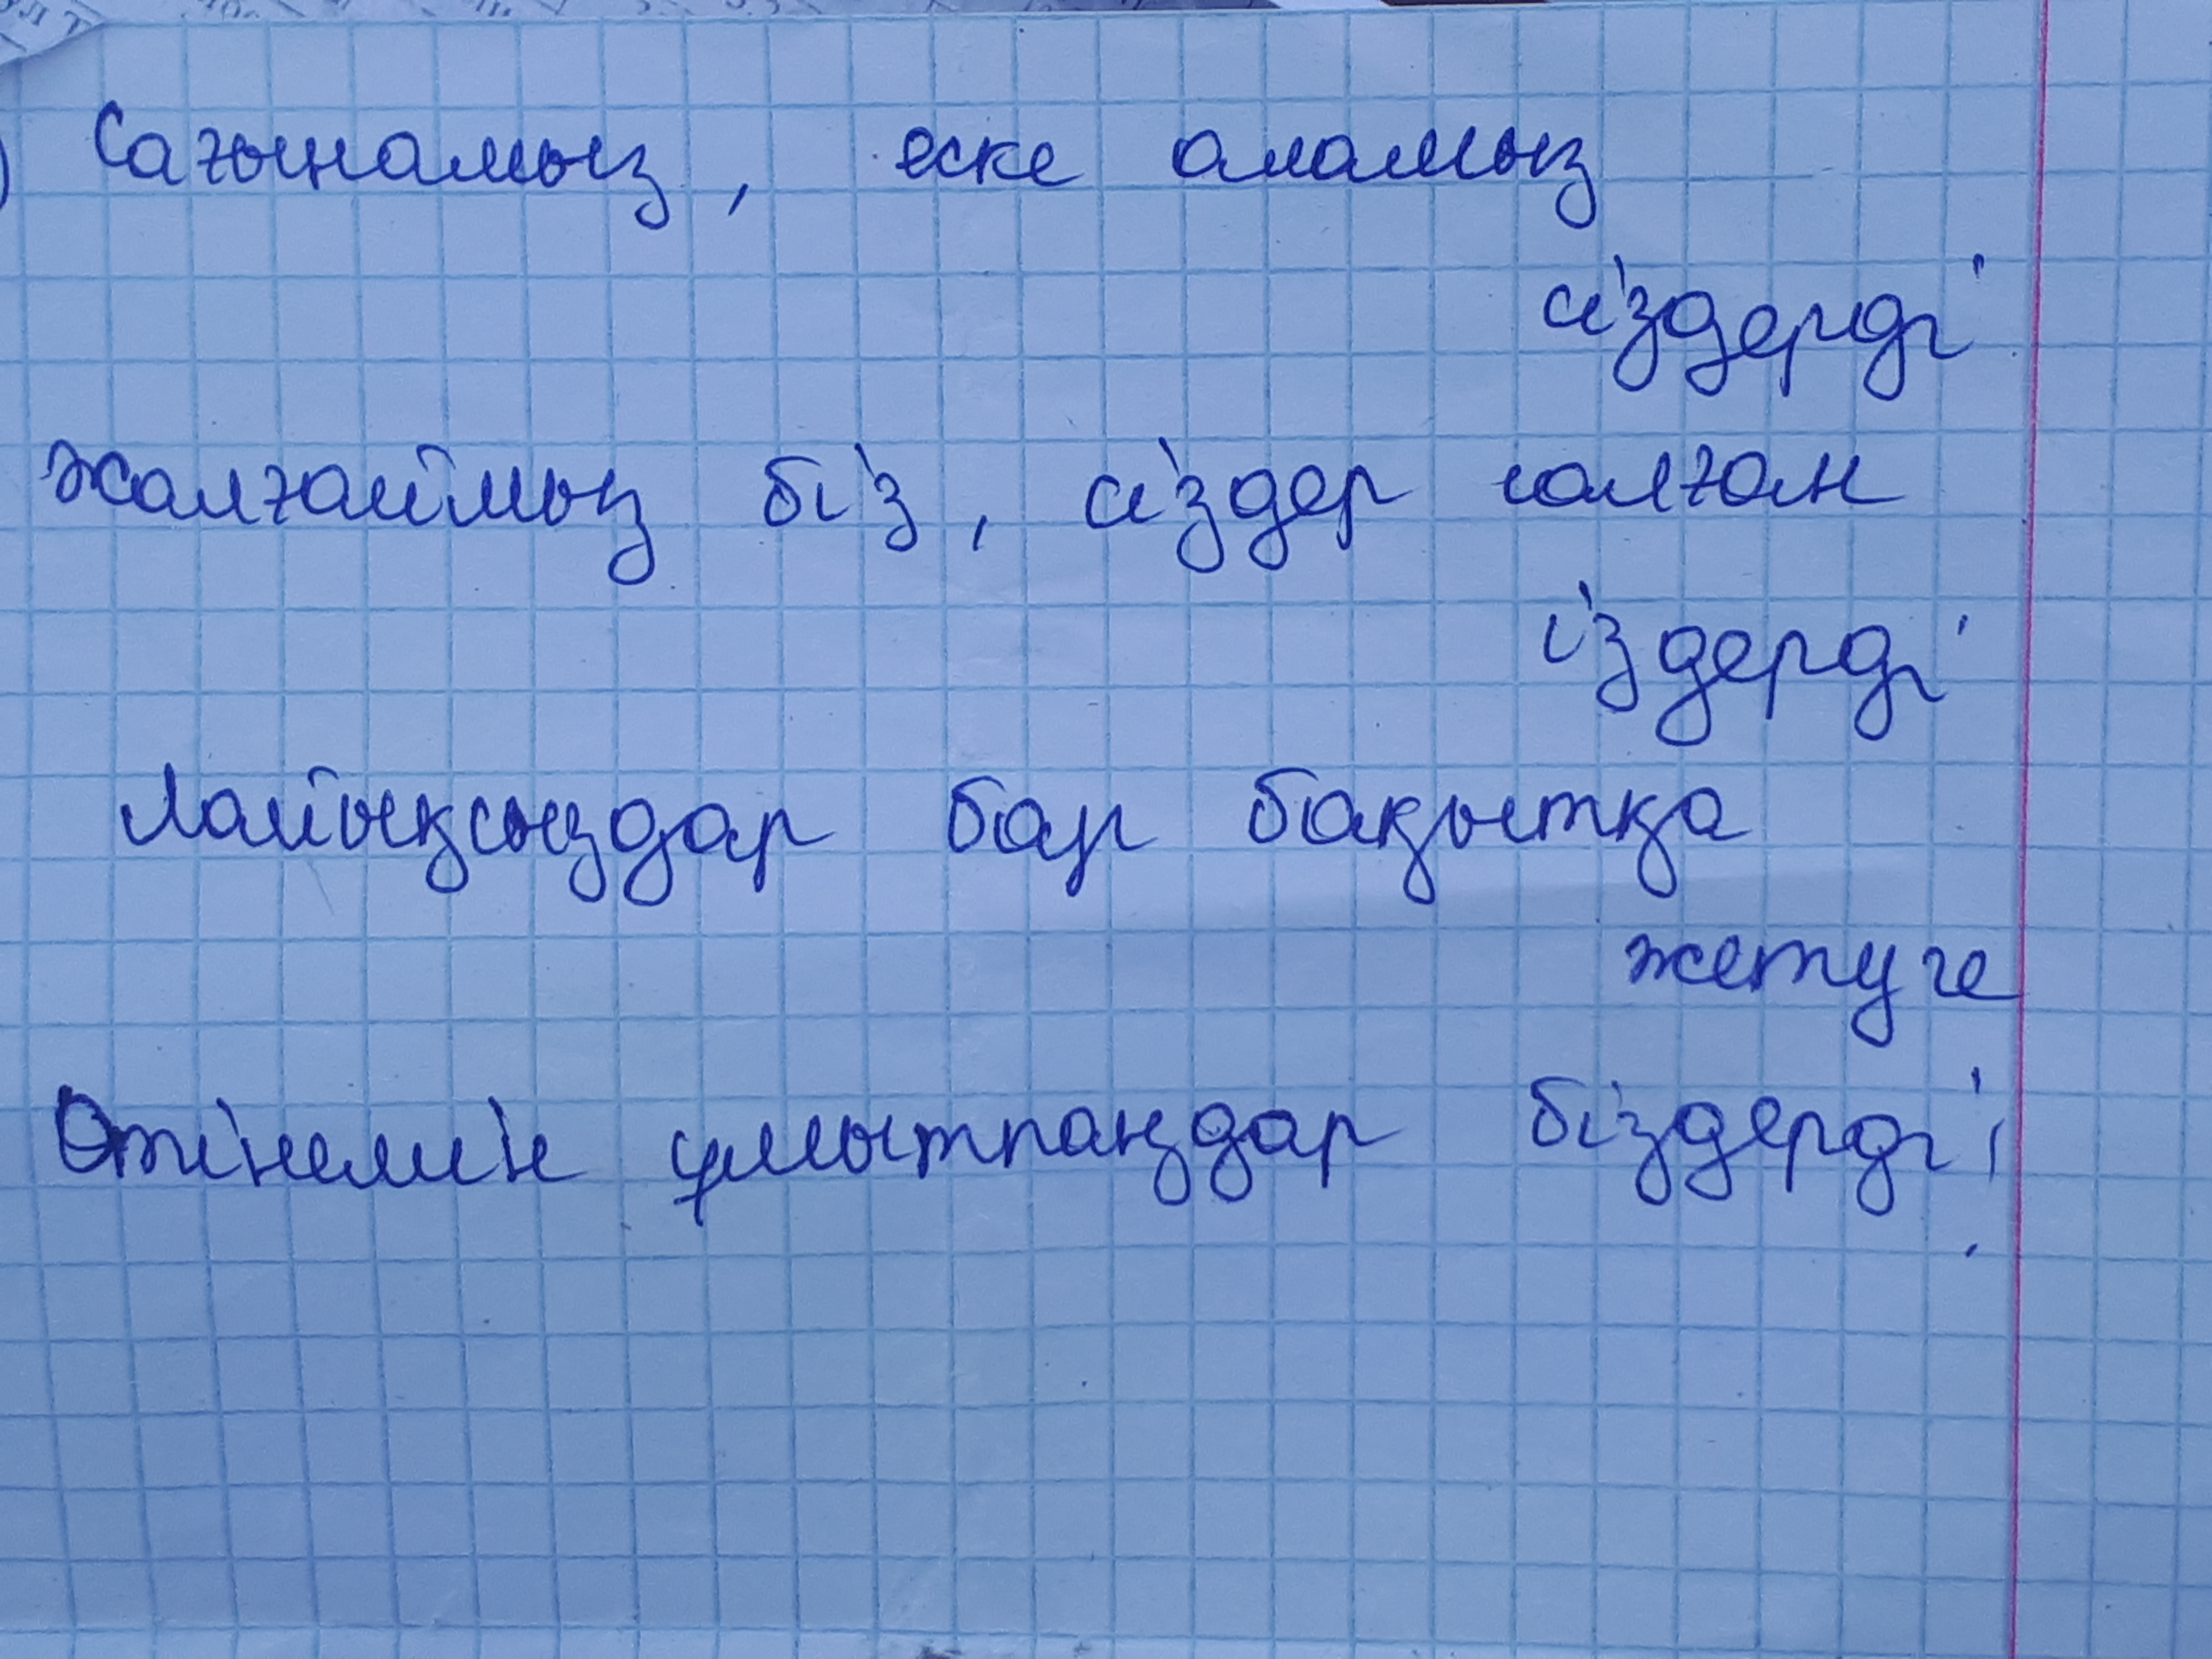 Сағынамыз, еске аламыз
сіздерді
жалғаймыз біз, сіздер салған
іздерді
Лайықсыздар бар бақытқа
жетуге
Өтінемін ұмытпаңдар біздерді!